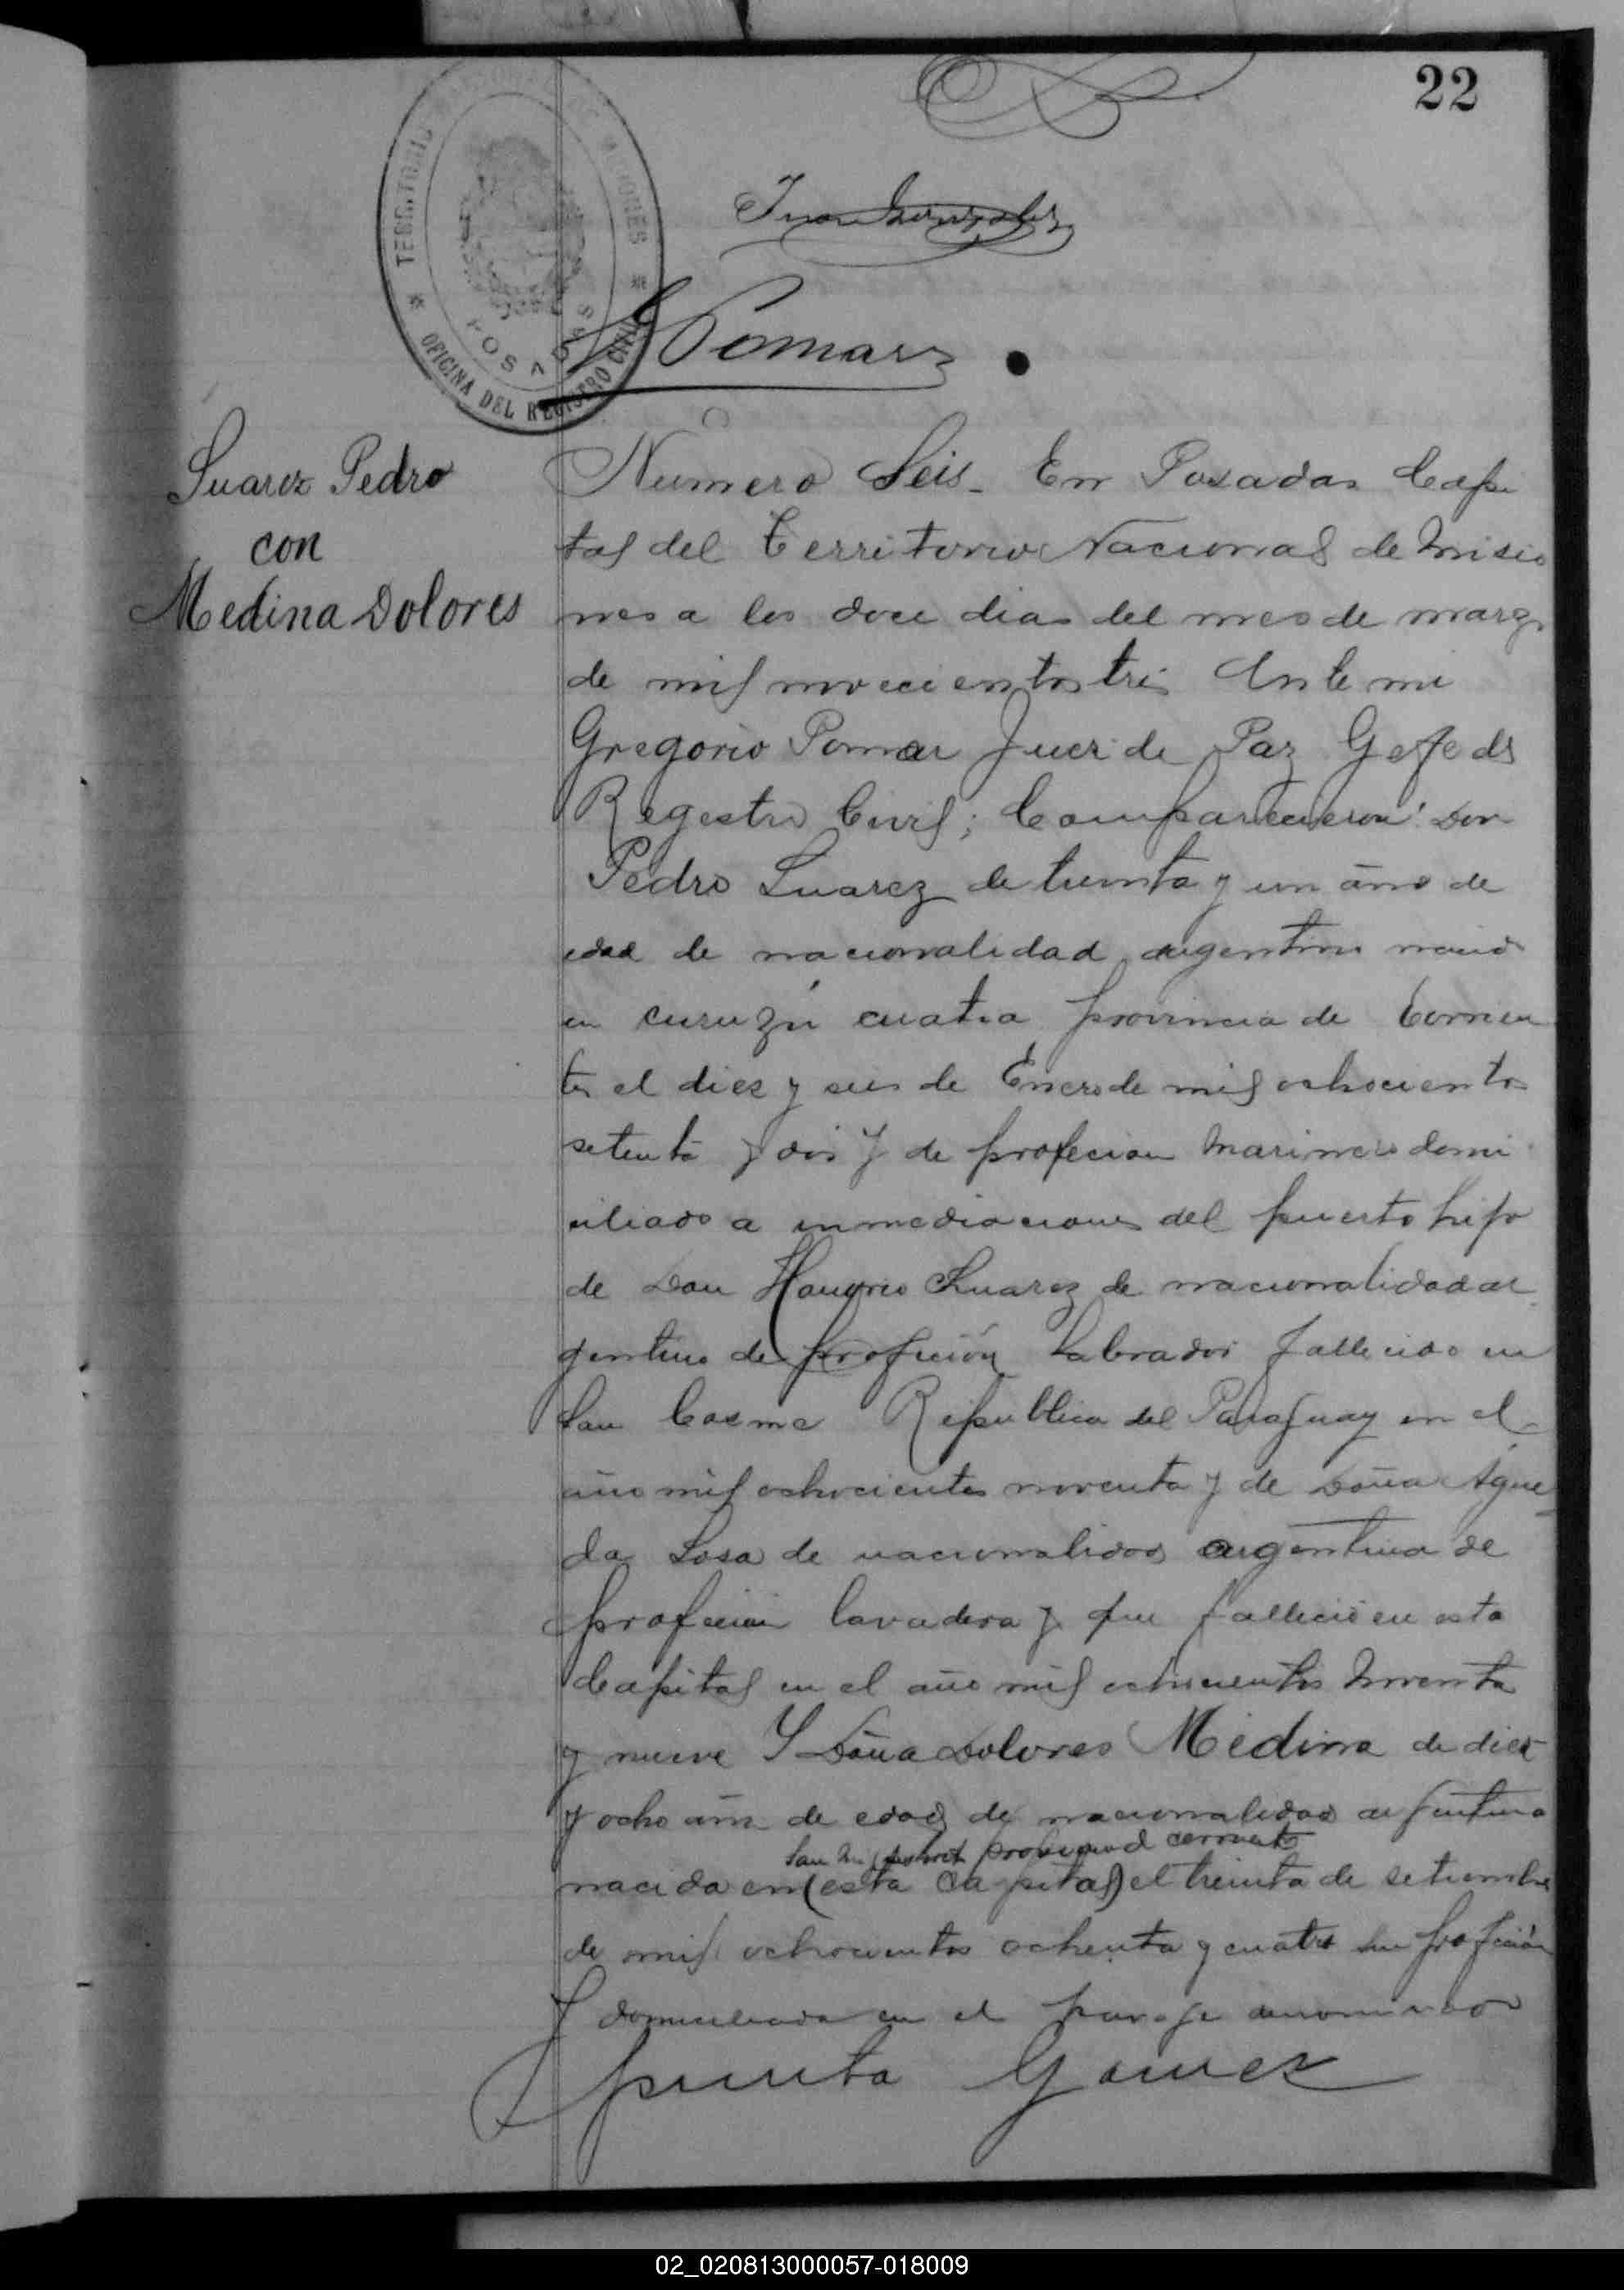 22
TERRITORIO NACIONAL DE MISIONES
POSADAS
OFICINA DEL REGISTRO CIVIL
Juan Gonzalez
G Pomar
Suarez Pedro
con
Medina Dolores
Número Seis. En Posadas Capi
tal del Territorio Nacional de Misio
nes a los doce dias del mes de marzo
de mil novecientos tres Ante mi
Gregorio Pomar Juez de Paz Gefe del
Registro Civil; Comparecieron: Don
Pedro Suarez de treinta y un año de
edad de nacionalidad argentino nacido
en curuzú cuatia provincia de Corrien
tes el diez y seis de Enero de mil ochocientos
setenta y dos y de profecion Marinero domi
ciliado a inmediaciones del puerto hijo
de Don Honorio Suarez de nacionalidad ar
gentino de profeción Labrador fallecido en
San Cosme Republica del Paraguay en el
año mil ochocientos noventa y de Doña Ague
da Sosa de nacionalidad argentina de
profecion lavadera y que falleció en esta
Capital en el año mil ochocientos noventa
y nueve Y Doña Dolores Medina de diez
y ocho años de edad de nacionalidad argentina
San provincia d corrientes
nacida en (esta Capital) el treinta de setiembre
de mil ochocientos ochenta y cuatro sin profeción
y domiciliada en el paraje denominado
punta Gomez
02_020813000057-018009